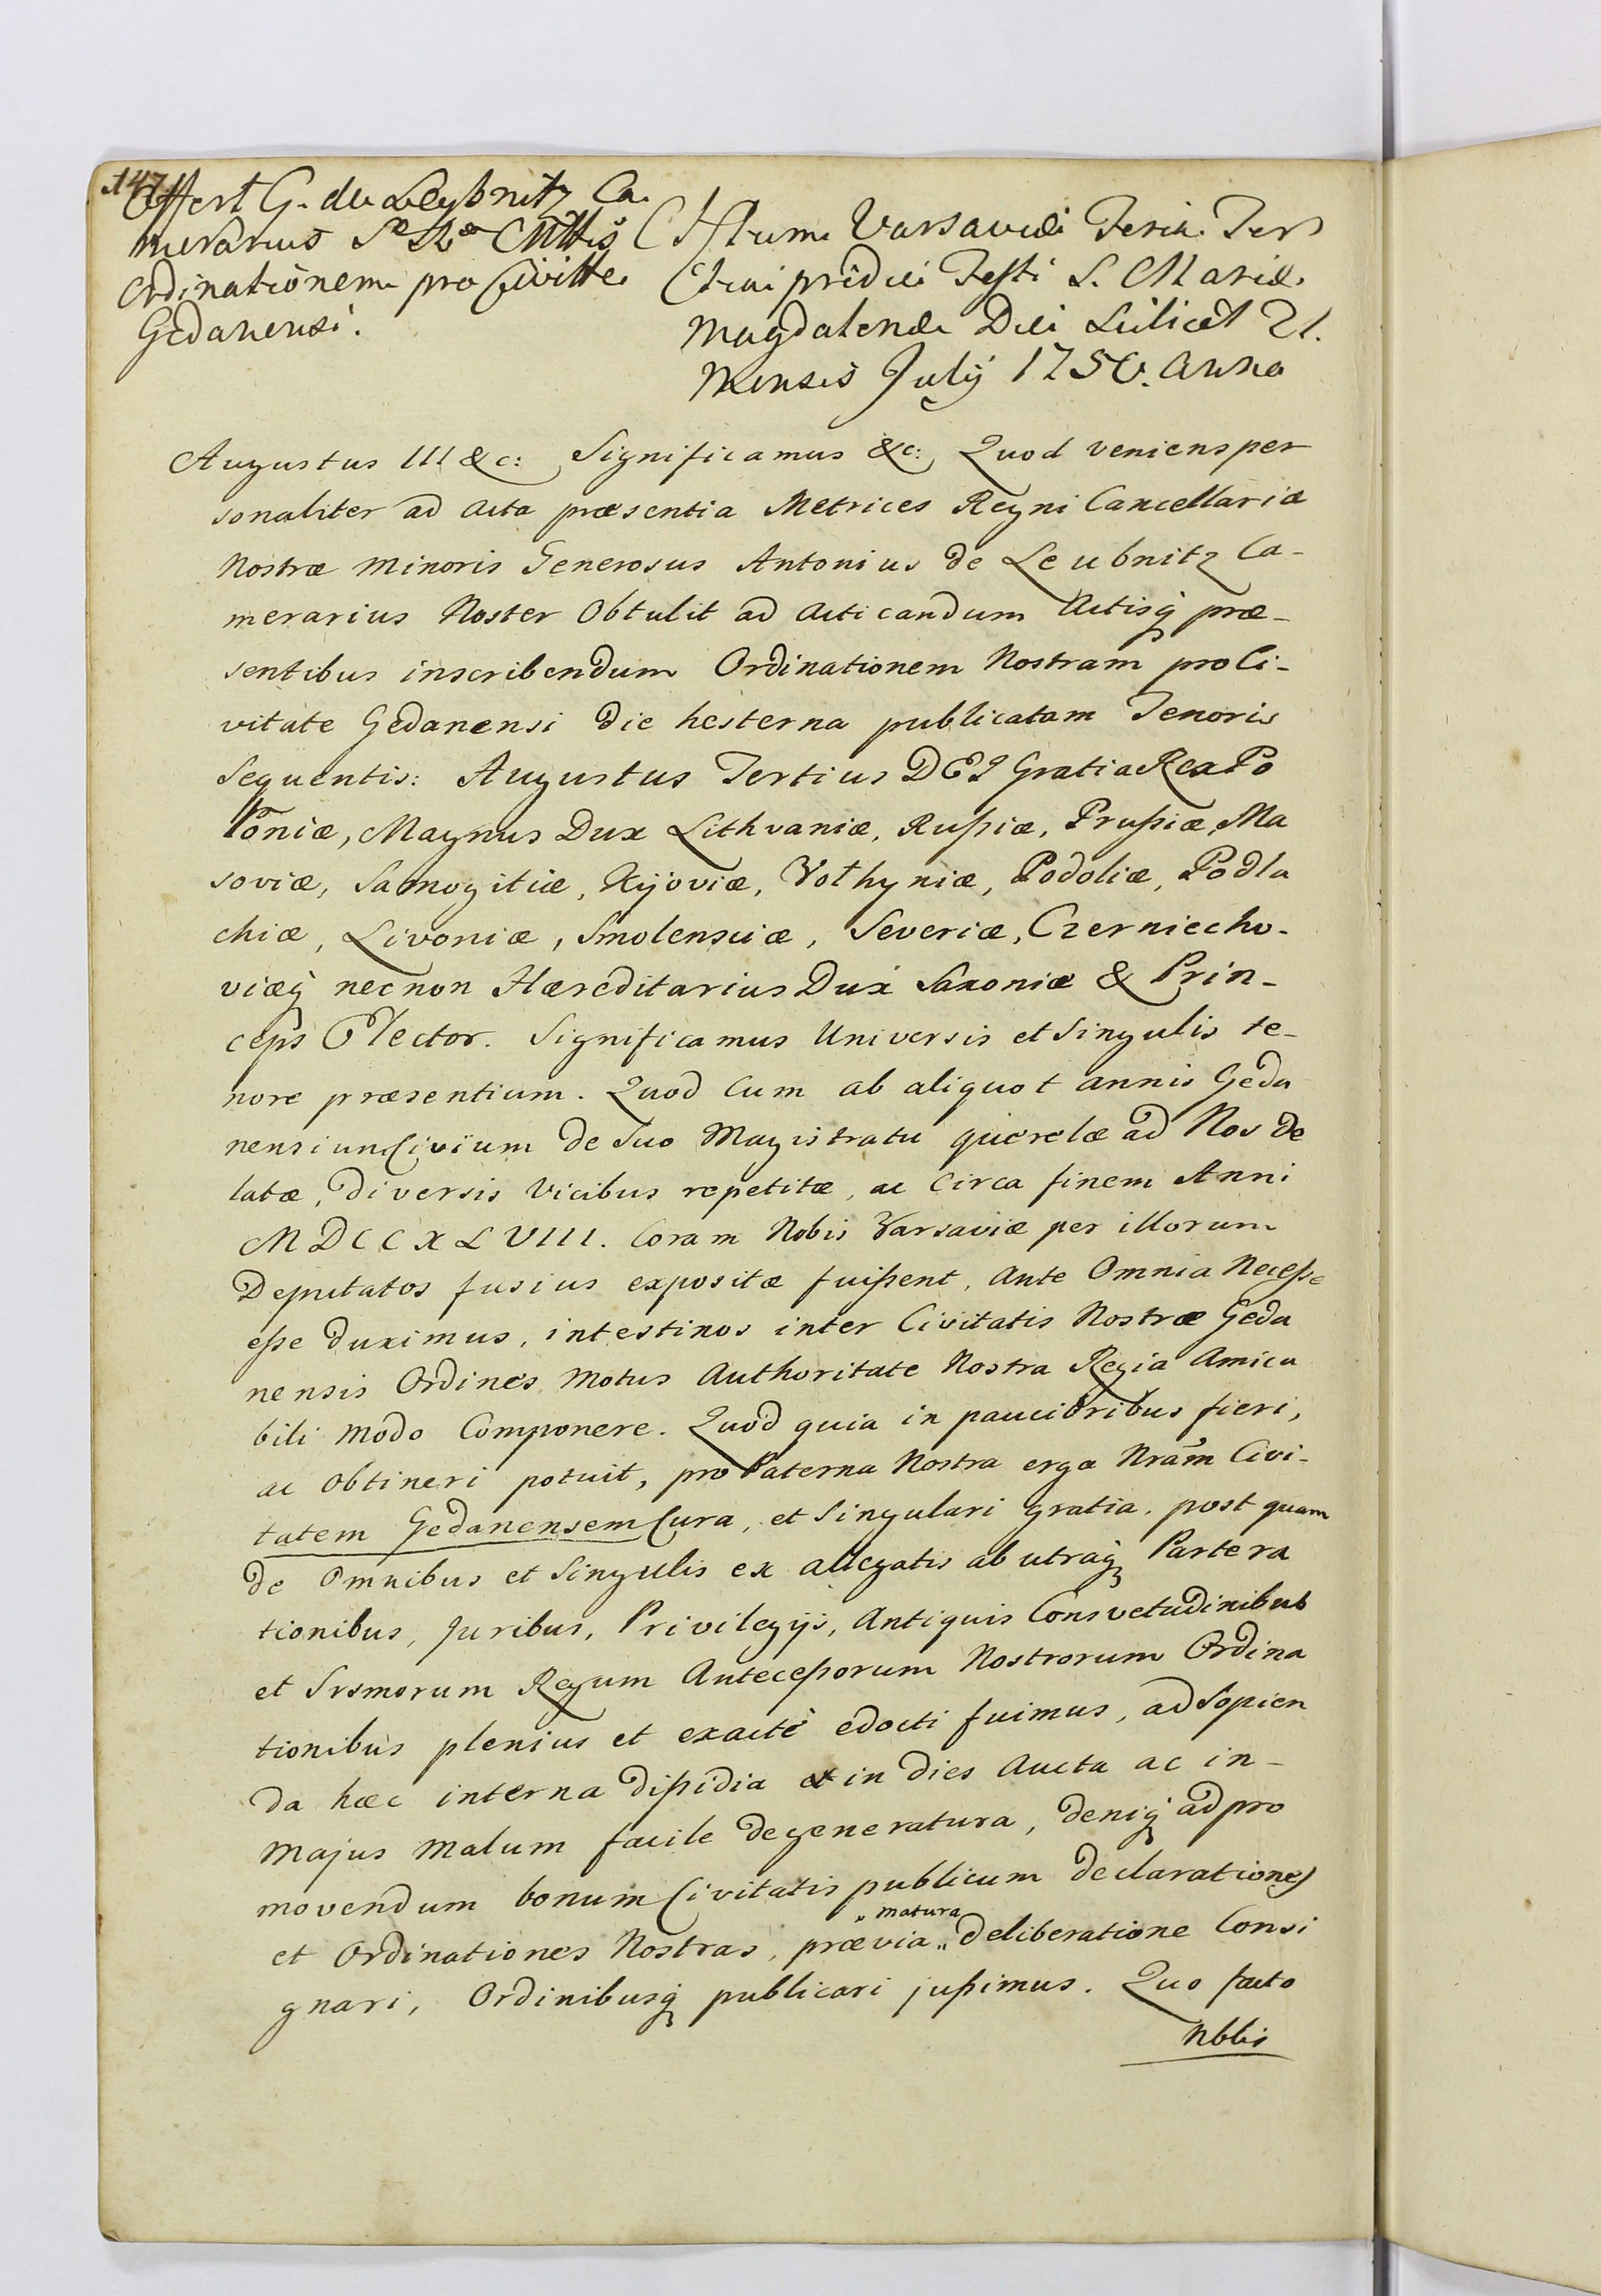 147
Offert G. de Leybnitz Ca.
merarius Sæ Ræ Mttis
Ordinationem pro Civitte
Gedanensi.
Actum Varsaviæ Feria Ter
tia pridie Festi S. Mariæ
Magdalenæ Die Scilicet 21.
Mensis Julij 1750. Anno
Augustus III &c: Significamus &c: Quod veniens per
sonaliter ad Acta præsentia Metrices Regni Cancellariæ
Nostræ Minoris Generosus Antonius de Leubnitz Ca-
merarius Noster Obtulit ad Acticandum Actisq̃ præ-
sentibus inscribendum Ordinationem Nostram pro Ci-
vitate Gedanensi die hesterna publicatam Tenoris
Sequentis: Augustus Tertius DEI Gratia Rex Po
loniæ, Magnus Dux Lithvaniæ, Rußiæ, Prußiæ, Ma
soviæ, Samogitiæ, Kijoviæ, Volhyniæ, Podoliæ, Podla
chiæ, Livoniæ, Smolensciæ, Severiæ, Czerniecho-
viæq̃ necnon Hæreditarius Dux Saxoniæ & Prin-
ceps Elector. Significamus Universis et Singulis te-
nore præsentium. Quod Cum ab aliquot annis Geda
nensium Civium de Suo Magistratu querelæ ad Nos de
latæ, diversis Vicibus repetitæ, ac Circa finem Anni
MDCCXLVIII. Coram Nobis Varsaviæ per illorum
Deputatos fusius expositæ fuißent, Ante Omnia Neceße
eße duximus, intestinos inter Civitatis Nostræ Geda
nensis Ordines Motus Authoritate Nostra Regia Amica
bili Modo Componere. Quod quia in paucioribus fieri,
ac Obtineri potuit, pro Paterna Nostra erga Nram̃ Civi-
tatem Gedanensem Cura, et Singulari gratia. post quam
de Omnibus et Singulis ex allegatis ab utraq̃ Parte ra
tionibus, Juribus, Privilegijs, Antiquis Consvetudinibus
et Srsmorum Regum Anteceßorum Nostrorum Ordina
tionibus plenius et exactè edocti fuimus, ad Sopien
da hæc interna dißidia et in dies Aucta ac in-
Majus Malum facile degeneratura, deniq̃ ad pro
movendum bonum Civitatis publicum declarationes
et Ordinationes Nostras, prævia „ matura „ deliberatione Consi
gnari, Ordinibusq̃ publicari jußimus. Quo facto
Nblis